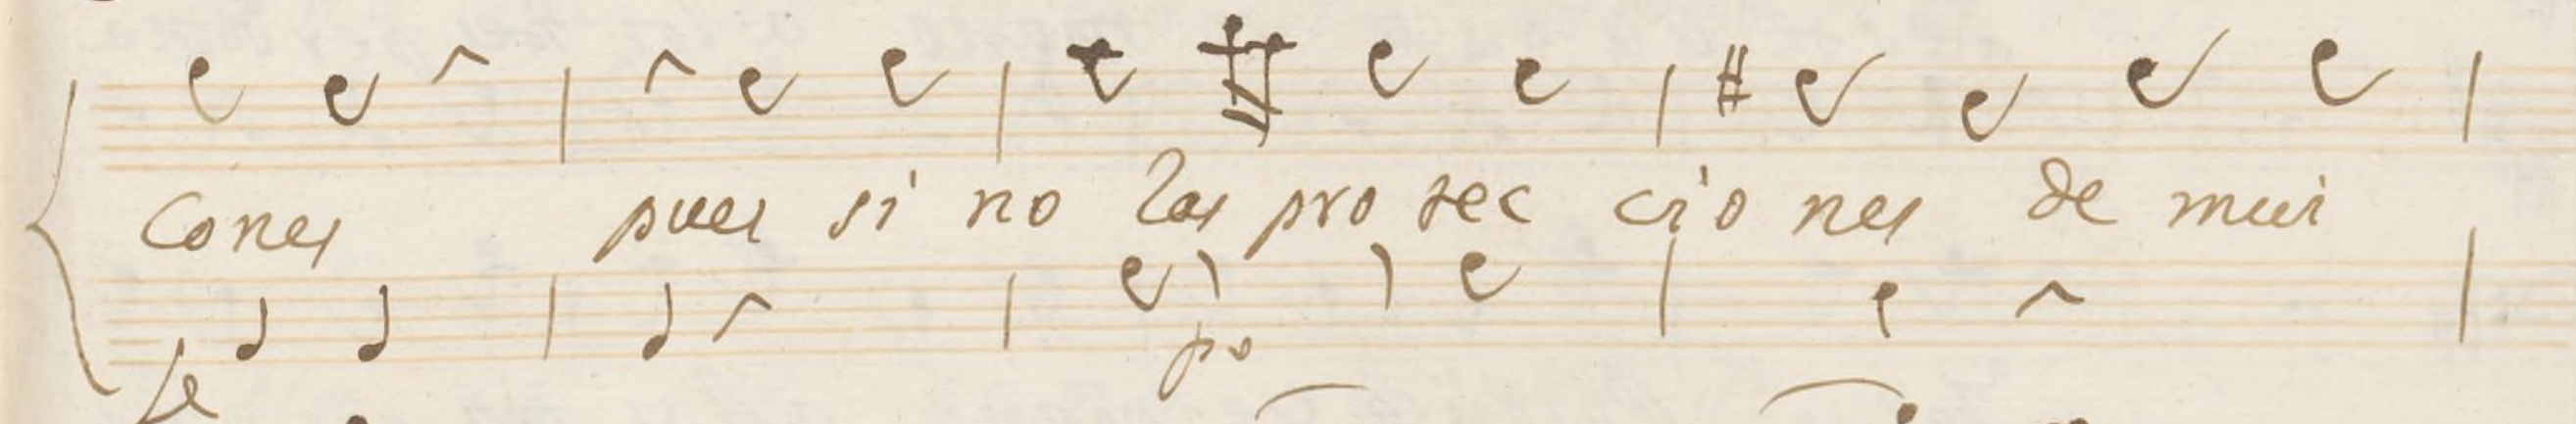 Cones pues si no las pro tec cio nes de mui
po
fe